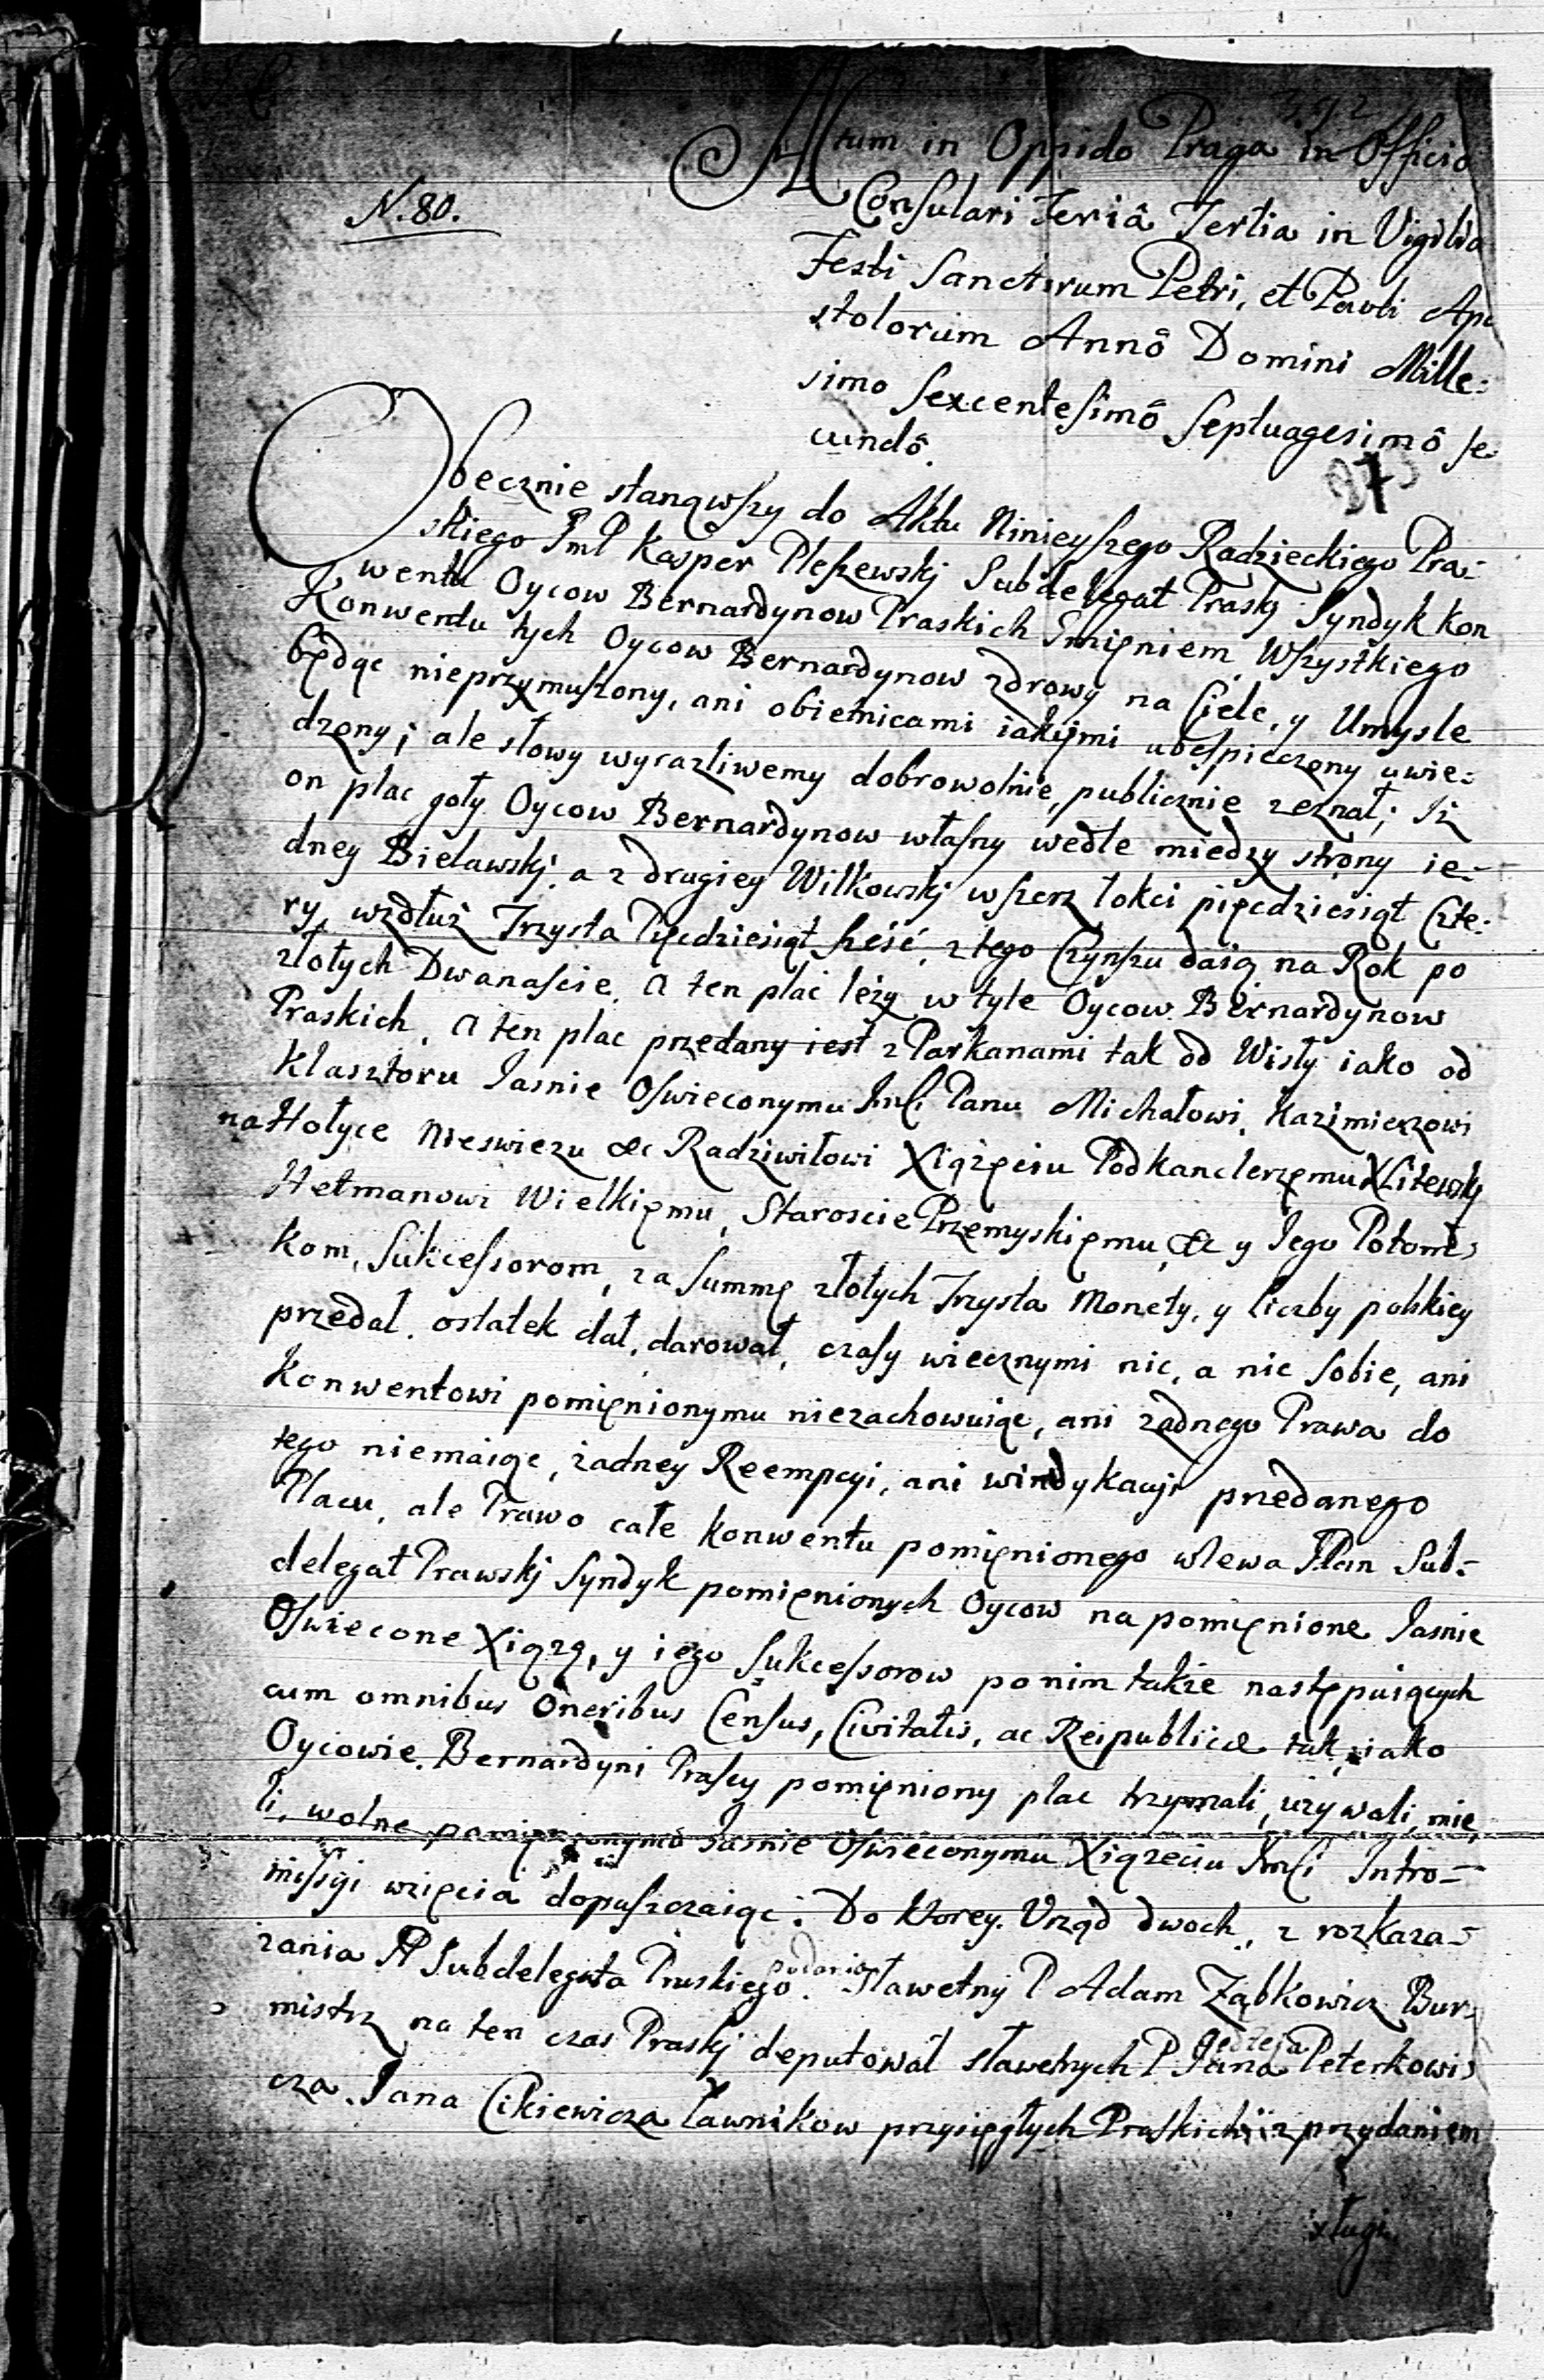 N. 80.
Actum in Oppido Praga in Officio
Consulari Feriâ Tertia in Vigilia
Festi Sanctorum Petri, et Pauli Apo
stolorum Annô Domini Mille-
simo Sexcentesimô Septuagesimô Se-
cundô.
973
Obecznie stanąwszy do Aktu Ninieyszego Radzieckiego Pra-
skiego Jmć Kasper Pleszewskj Subdelegat Praskj Syndyk Kon
wentu Oycow Bernardynow Praskich Jmięniem Wszystkiego
Konwentu tych Oycow Bernardynow zdrowy na Ciele, y Umysle
będąc nieprzymuszony, ani obietnicami iakijmi ubespieczony uwie-
dzony; ale słowy wyrazliwemy dobrowolnie, publicznie zeznał; Iż
on plac goły Oycow Bernardynow własny wedle miedzy strony ie-
dney Bielawskj, a z drugiey Wilkowskj wszerz łokci pięcdziesiąt Czte-
ry, wzdłuż Trzysta Pięcdziesiąt sześć, z tego Czynszu daią na Rok po
złotych Dwanascie, a ten plac leży w tyle Oycow Bernardynow
Praskich, a ten plac przedany iest z Parkanami tak od Wisły iako od
Klasztoru Jasnie Oswieconymu Jmći Panu Michałowi, Kazimierzowi
na Hołyce Nieswiezu &c Radziwiłowi Xiążęciu Podkanclerzemu X Litewsky
Hetmanowi Wielkięmu, Staroscie Przemyskięmu, &c y Jego Potom-
kom, Sukcessorom, za Summę złotych Trzysta Monety, y liczby polskiey
przedał, ostatek dał, darował, czasy wiecznymi nic, a nic sobie, ani
Konwentowi pomięnionymu niezachowuiąc, ani żadnego Prawa do
tego niemaiąc, żadney Reempcyi, ani windykacyi przedanego
Placu, ale Prawo całe konwentu pomięnionego wlewa Pan Sub-
delegat Prawskj Syndyk pomięnionych Oycow na pomięnione Jasnie
Oswiecone Xiążę, y iego Sukcessorow po nim także następuiących
cum omnibus Oneribus Census, Civitatis, ac Reipublicæ tak, iako
Oycowie Bernardyni Prascy pomięniony plac trzymali, używali, mie
li, wolne pomięnionymu Jasnie Oswieconymu Xiążeciu Jmći Intro-
missyi wzięcia dopuszczaiąc. Do ktorey Urząd dwoch, z rozkaza-
zania JP Subdelegata Pruskiego podania. Sławetny P Adam Ząbkowicz Bur-
mistrz na ten czas Praskj deputował sławetnych P. Jana Peterkowi-
cza, Jana Cikiewicza Ławnikow przysięgłych Praskich z przydaniem
sługi